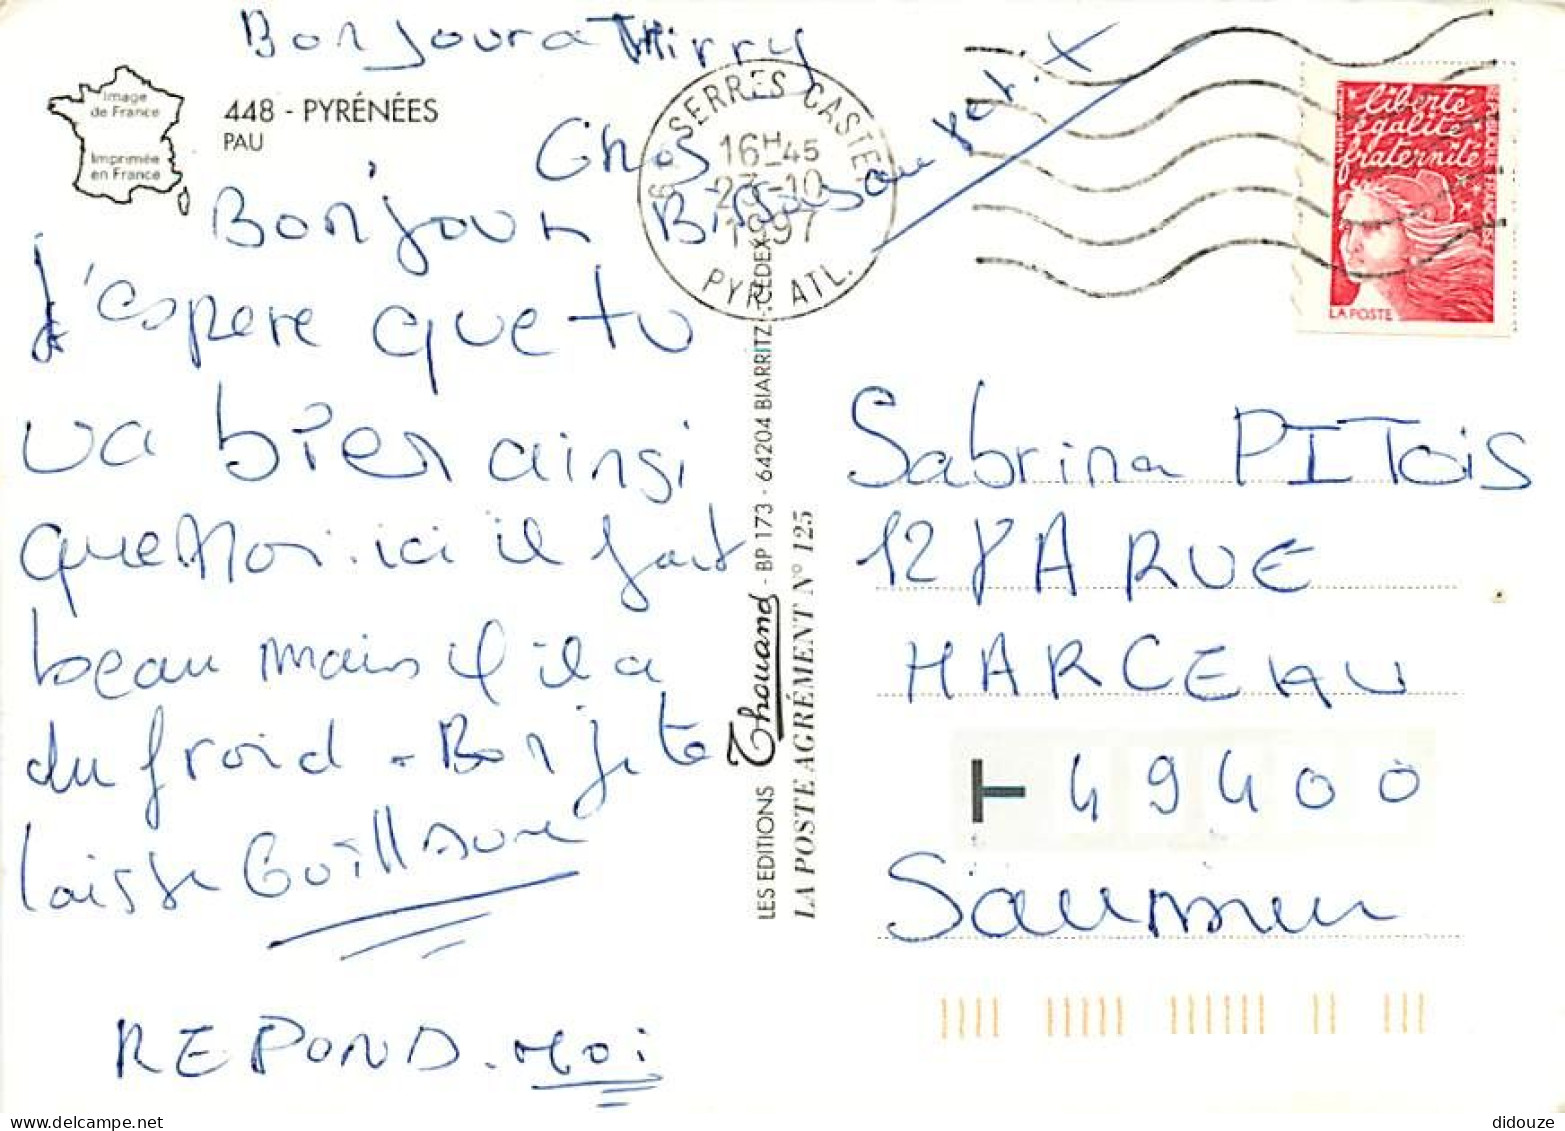 Bonjour a Thirry
Image
de France
Imprimée
en France
448 - PYRÉNÉES
PAU
Gros
Bisous au petit X
Bonjour
J'espere que tu
va bien ainsi
que Moi. ici il fait
beau mais il i a
du froid - Bon je te
laisse Guillaume
REPOND. Moi
64 SERRES CASTET
16H45
23-10
1997
PYR. ATL.
LES EDITIONS Thouand - BP 173 - 64204 BIARRITZ CEDEX
LA POSTE AGRÉMENT N° 125
liberté
égalité
fraternité
RÉPUBLIQUE FRANÇAISE
LA POSTE
Sabrina PITois
128 A RUE
MARCEAU
T 49400
Saumur
didouze